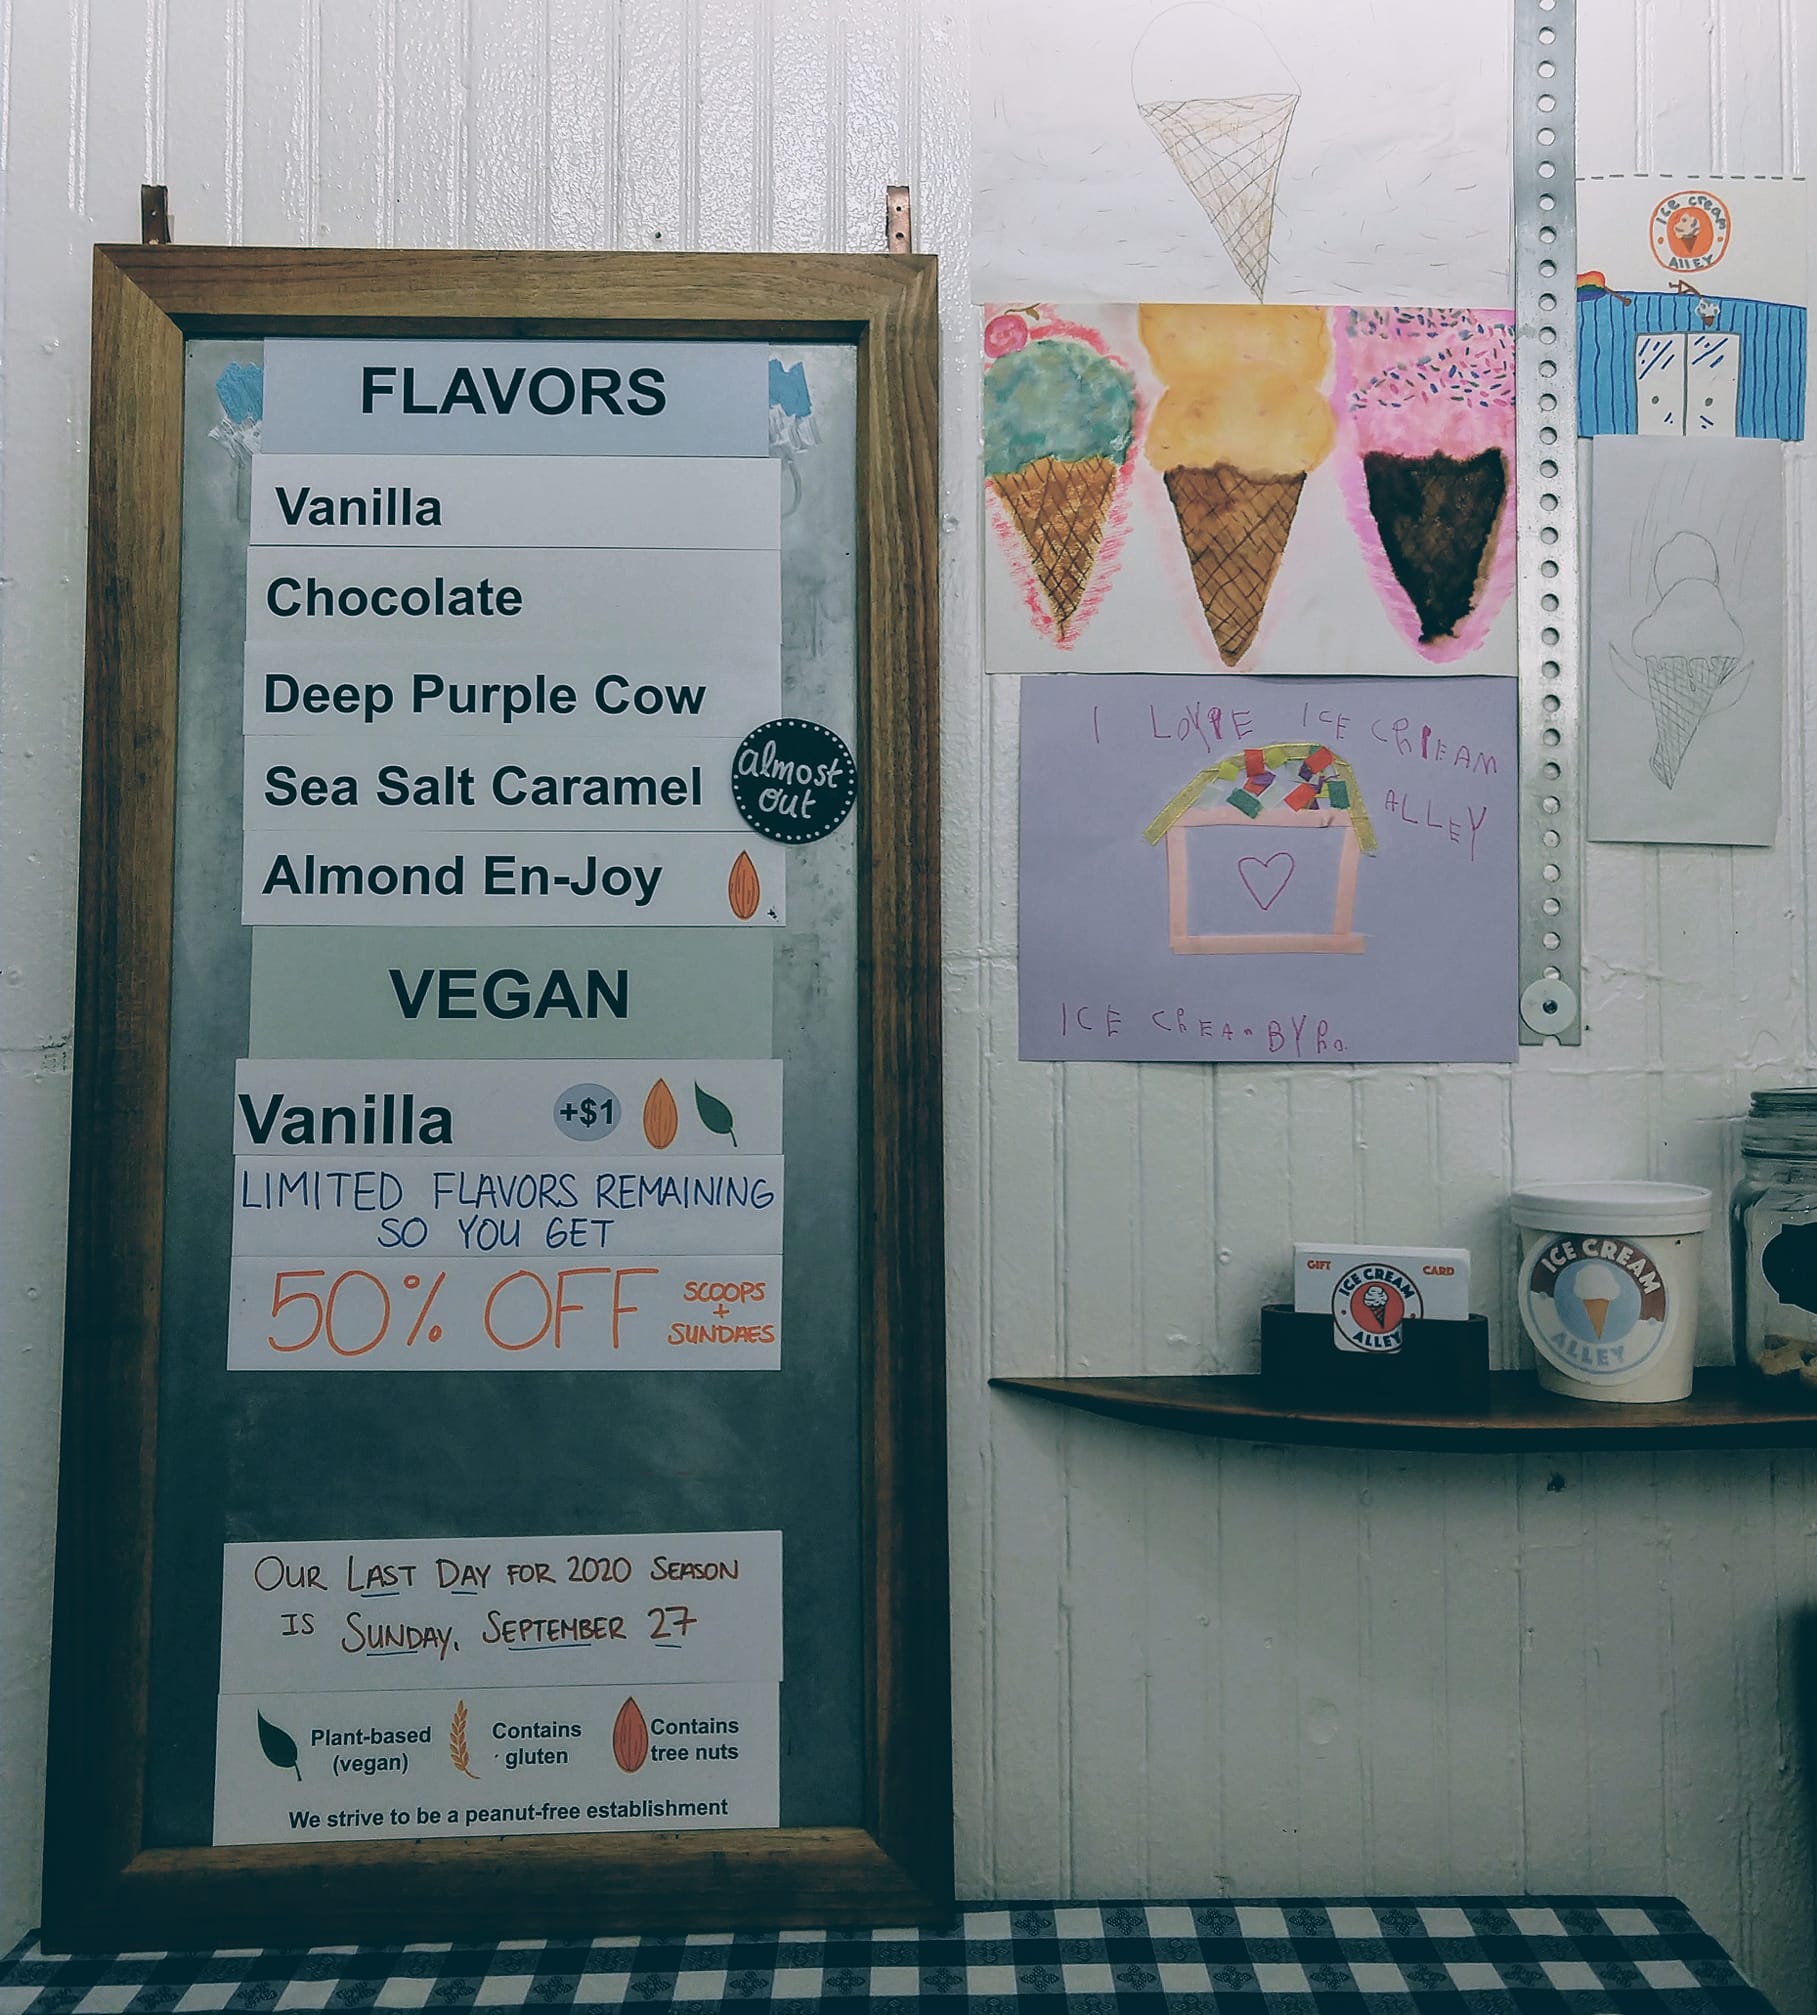 FLAVORS
Vanilla
Chocolate
Deep Purple Cow
Sea Salt Caramel
almost
out
Almond En-Joy
VEGAN
Vanilla +$1
LIMITED FLAVORS REMAINING
SO YOU GET
50% OFF SCOOPS
+
SUNDAES
OUR LAST DAY FOR 2020 SEASON
IS SUNDAY, SEPTEMBER 27
Plant-based
(vegan)
Contains
gluten
Contains
tree nuts
We strive to be a peanut-free establishment
Ice cream
AllEY
I LOVE ICE CREAM
ALLEY
ICE CREAM BY
GIFT CARD
ICE CREAM
ALLEY
ICE CREAM
ALLEY